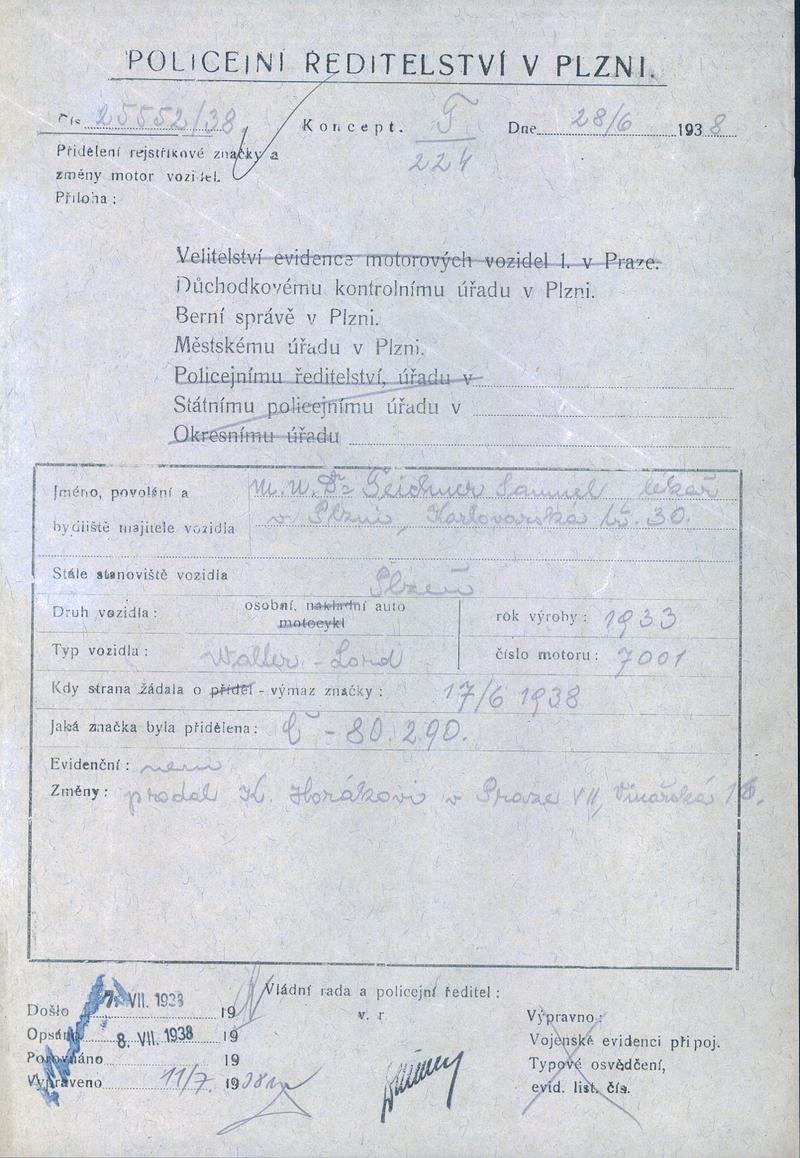 POLICEJNÍ ŘEDITELSTVÍ V PLZNI.
Čís. 25552/38 Koncept. F Dne 28/6 1938
224
Přidělení rejstříkové značky a
změny motor vozidel.
Příloha:
Velitelství evidence motorových vozidel 1. v Praze.
Důchodkovému kontrolnímu úřadu v Plzni.
Berní správě v Plzni.
Městskému úřadu v Plzni.
Policejnímu ředitelství, úřadu v
Státnímu policejnímu úřadu v
Okresnímu úřadu
Jméno, povolání a M. U. Dr Teichner Samuel lékař
bydliště majitele vozidla v Plzni, Karlovarská tř. 30.
Stálé stanoviště vozidla Plzeň
Druh vozidla: osobní, nákladní auto rok výroby: 1933
motocykl
Typ vozidla: Walter - Lord číslo motoru: 7001
Kdy strana žádala o příděl - výmaz značky: 17/6 1938
Jaká značka byla přidělena: Č - 80.290.
Evidenční: není
Změny: prodal K. Horákovi v Praze VII, Vinařská 16.
Vládní rada a policejní ředitel:
v. r
Došlo 7. VII. 1938 19
Opsáno 8. VII. 1938 19
Porovnáno 19
Vypraveno 11/7. 1938
Výpravno:
Vojenské evidenci připoj.
Typové osvědčení,
evid. list. čís.